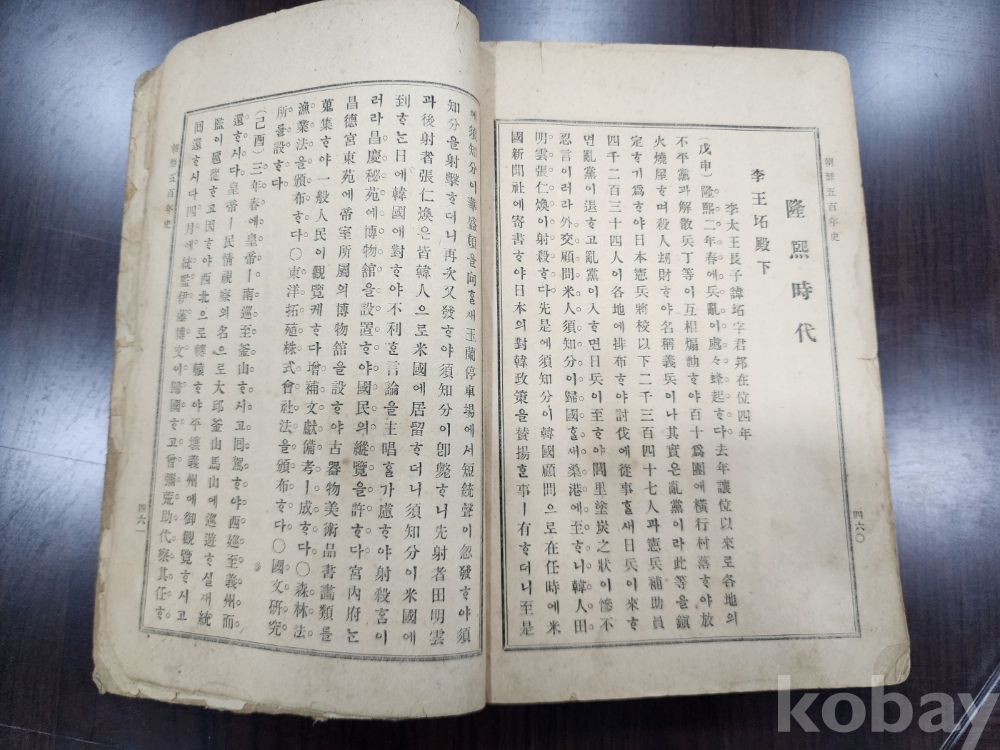 朝鮮五百年史
隆熙時代
李王坧殿下
李太王長子諱坧字君邦在位四年
(戊申)隆熙二年春에兵亂이處々蜂起ᄒᆞ다去年讓位以來로各地의
不平黨과解散兵丁等이互相煽動ᄒᆞ야百十爲團에橫行村落ᄒᆞ야放
火燒屋ᄒᆞ며殺人刼財ᄒᆞ야名稱義兵이나其實은亂黨이라此等을鎭
定ᄒᆞ기爲ᄒᆞ야日本憲兵將校以下二千三百四十七人과憲兵補助員
四千二百三十四人이各地에排布ᄒᆞ야討伐에從事ᄒᆞᆯ새日兵이來ᄒᆞ
면亂黨이退ᄒᆞ고亂黨이入ᄒᆞ면日兵이至ᄒᆞ야閭里塗炭之狀이慘不
忍言이러라外交顧問米人須知分이歸國ᄒᆞᆯ새桑港에至ᄒᆞ니韓人田
明雲張仁煥이射殺ᄒᆞ다先是에須知分이韓國顧問으로在任時에米
國新聞社에寄書ᄒᆞ야日本의對韓政策을賛揚ᄒᆞᆫ事ㅣ有ᄒᆞ더니至是
四六〇
에須知分이華盛頓을向ᄒᆞᆯ새玉蘭停車場에서短銃聲이忽發ᄒᆞ야須
知分을射擊ᄒᆞ더니再次又發ᄒᆞ야須知分이卽斃ᄒᆞ니先射者田明雲
과後射者張仁煥은皆韓人으로米國에居留ᄒᆞ더니須知分이米國에
到ᄒᆞᄂᆞᆫ日에韓國에對ᄒᆞ야不利ᄒᆞᆫ言論을主唱ᄒᆞᆯ가慮ᄒᆞ야射殺홈이
러라昌慶秘苑에博物舘을設置ᄒᆞ야國民의縱覽을許ᄒᆞ다宮內府ᄂᆞᆫ
昌德宮東苑에帝室所屬의博物舘을設ᄒᆞ야古器物美術品書畵類를
蒐集ᄒᆞ야一般人民이觀覽케ᄒᆞ다增補文獻備考ㅣ成ᄒᆞ다〇森林法
漁業法을頒布ᄒᆞ다〇東洋拓殖株式會社法을頒布ᄒᆞ다〇國文硏究
所를設ᄒᆞ다
(己酉)三年春에皇帝ㅣ南巡至釜山ᄒᆞ시고回駕ᄒᆞ야西巡至義州而
還ᄒᆞ시다皇帝ㅣ民情視察의名으로大邱釜山馬山에巡遊ᄒᆞ실새統
監이扈從ᄒᆞ고因ᄒᆞ야西北으로轉轅ᄒᆞ야平壤義州에御觀覽ᄒᆞ시고
回還ᄒᆞ시다四月에統監伊藤博文이歸國ᄒᆞ고曾禰荒助代察其任ᄒᆞ
朝鮮五百年史
四六一
kobay